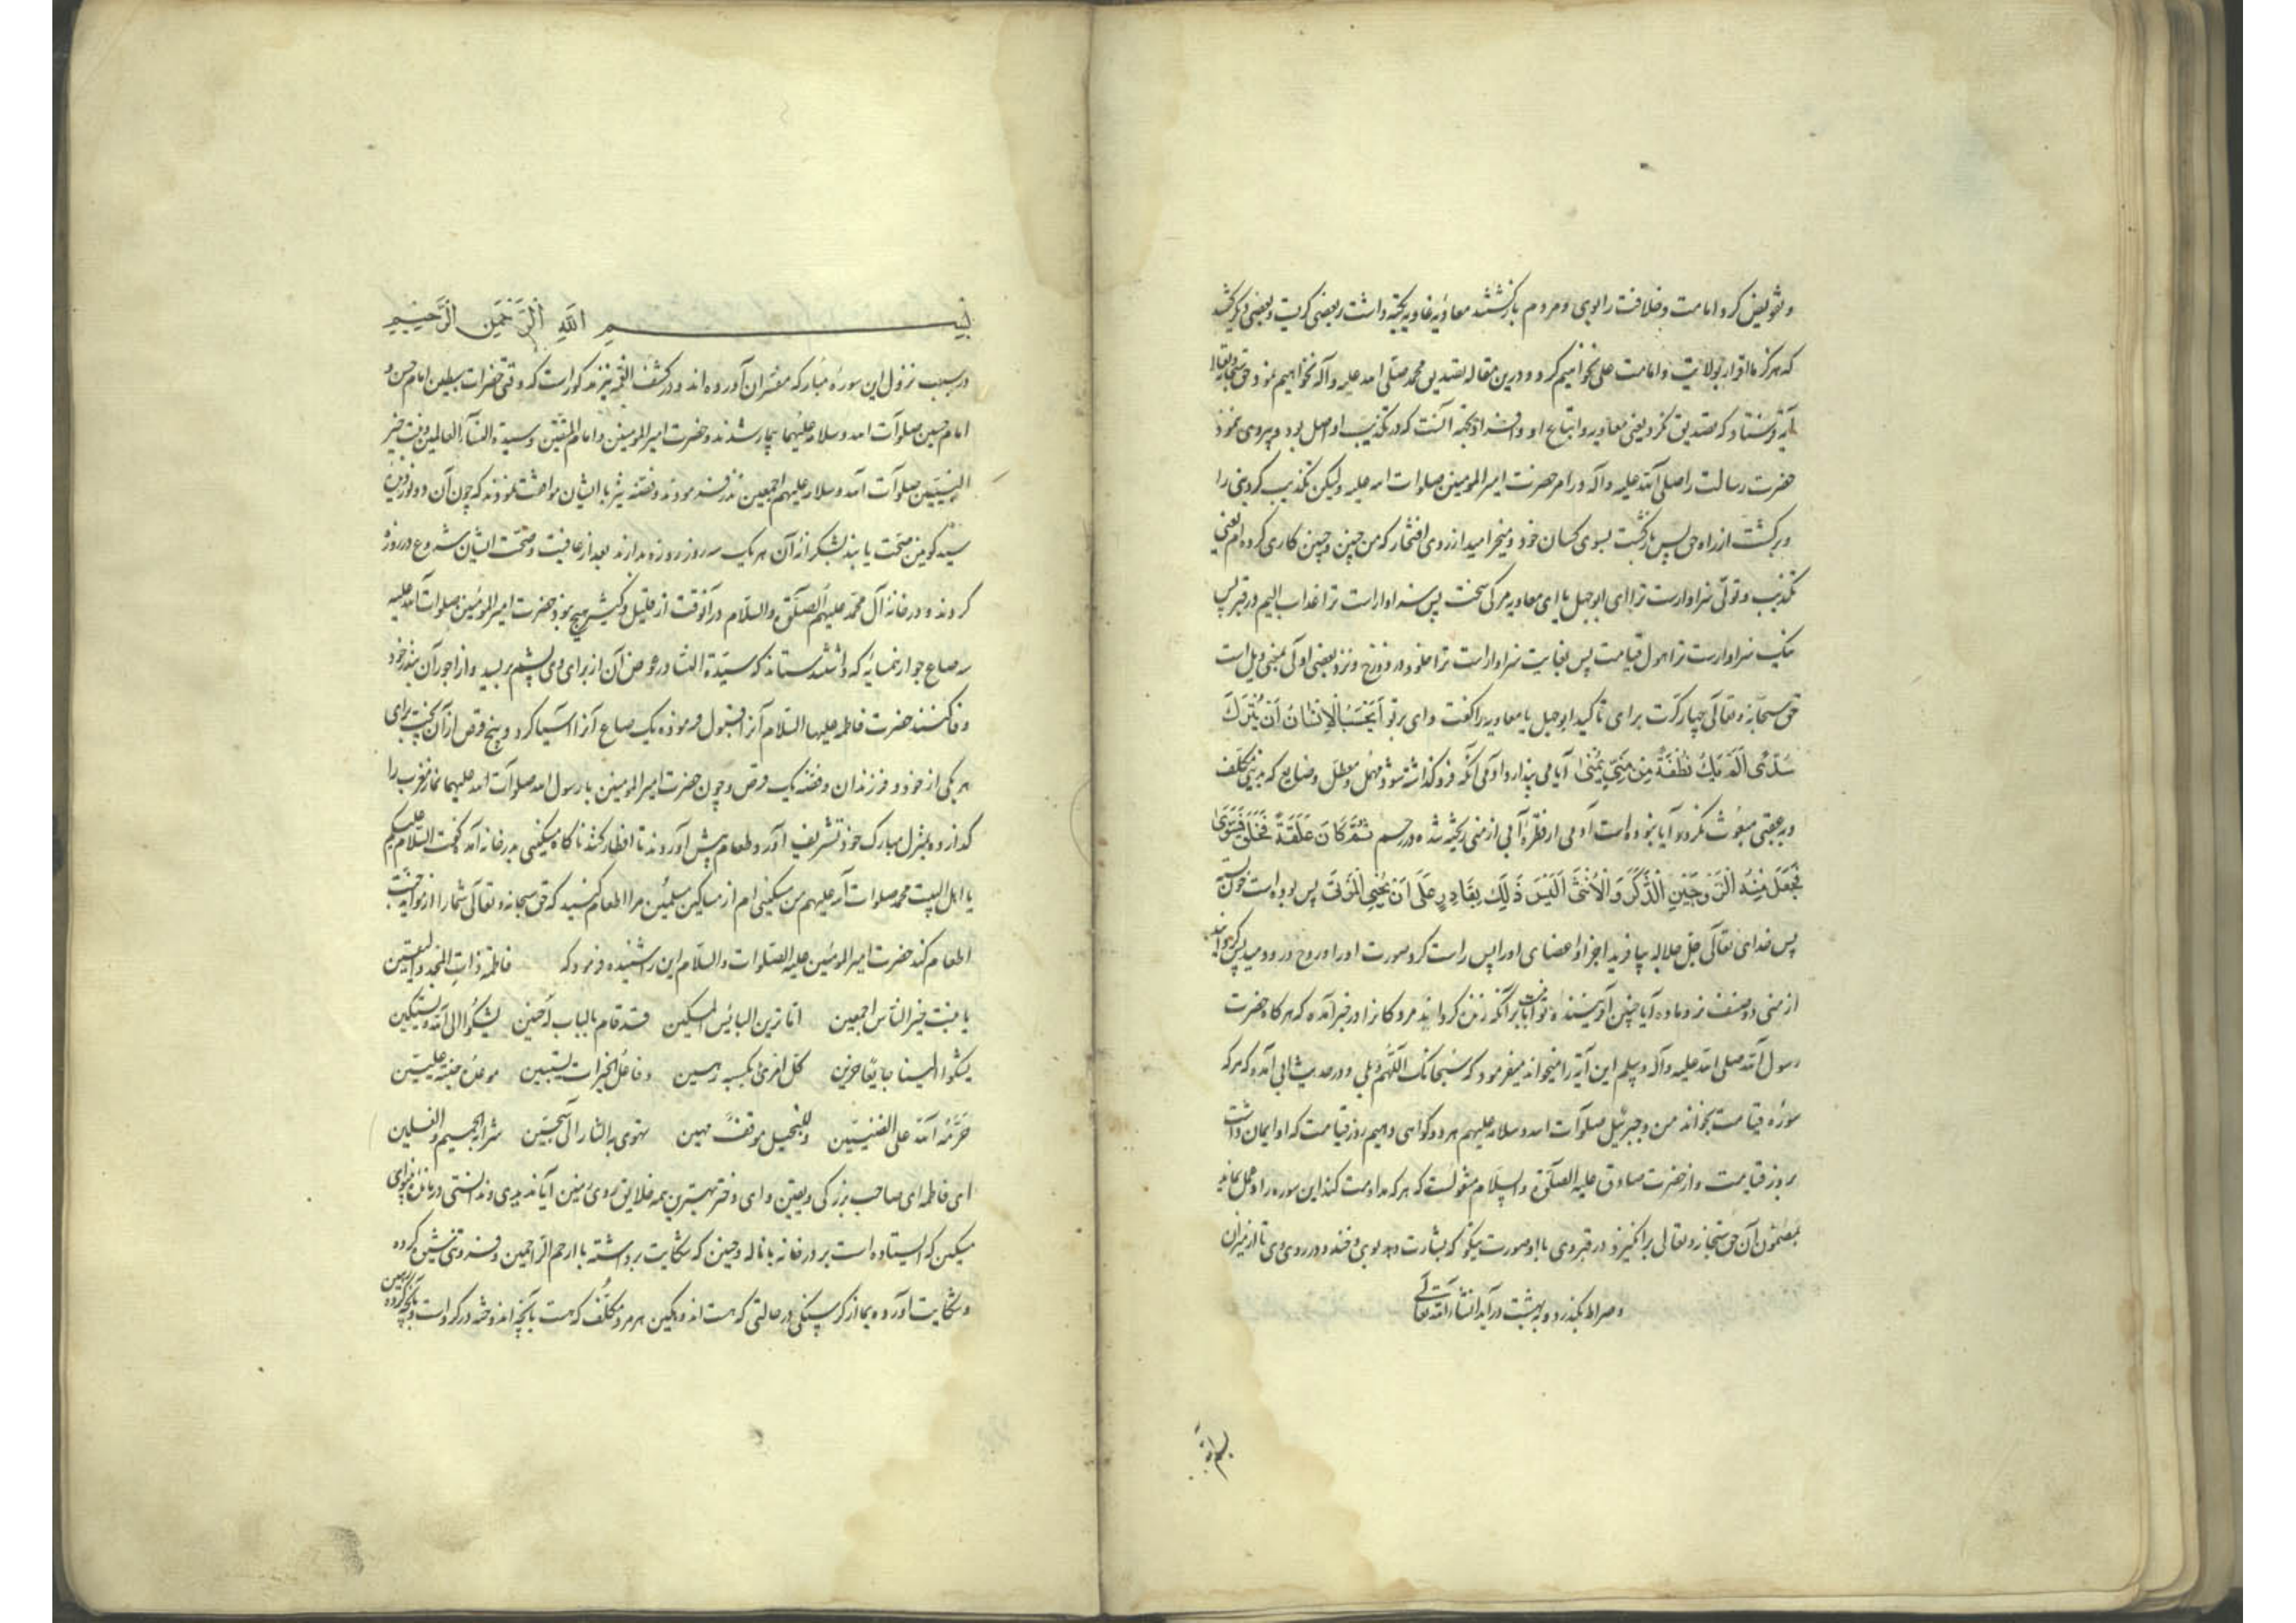 و تفویض کرد امامت و خلافت را بوی و مردم بازگشتند معاویه غاویه تکیه داشت بر بعضی کریت و بعضی دیگر گفتند
که هرگز ما اقرار بولایت و امامت علی نخواهیم کرد و درین مقاله تصدیق محمد صلی الله علیه و آله نخواهیم نمود حق سبحانه و تعالی
آیة فرستاد که تصدیق نکرد یعنی معاویه و اتباع او و است که در تکذیب او اصل بود و پیروی ننمود
حضرت رسالت را صلی الله علیه و آله در امر حضرت امیرالمومنین صلوات الله علیه ولیکن تکذیب کرد وی را
و برگشت از راه حق پس بازگشت بسوی کسان خود و میخرامید از روی افتخار که من چنین و چنین کاری کرده‌ام یعنی
تکذیب و تولی سزاوارست ترا ای ابوجهل یا ای معاویه مرگی سخت پس سزاوارست ترا عذاب الیم در قبر پس
نیک سزاوارست ترا هول قیامت پس بغایت سزاوارست ترا خلود در دوزخ و نزد بعضی اولی بمعنی ویل است
حق سبحانه و تعالی چهار کرت برای تاکید ابوجهل یا معاویه را گفت وای بر تو أَيَحْسَبُ الْإِنْسَانُ أَنْ يُتْرَكَ
سُدًى أَلَمْ يَكُ نُطْفَةً مِنْ مَنِيٍّ يُمْنَى آیا می پندارد آدمی آنکه فروگذاشته شود مهمل و معطل و ضایع که بدنیی مکلف
و بعقبی مبعوث نکردد آیا نبوده است آدمی از قطرهٔ آبی از منی ریخته شده در رحم ثُمَّ كَانَ عَلَقَةً فَخَلَقَ فَسَوَّى
فَجَعَلَ مِنْهُ الزَّوْجَيْنِ الذَّكَرَ وَالْأُنْثَى أَلَيْسَ ذَلِكَ بِقَادِرٍ عَلَى أَنْ يُحْيِيَ الْمَوْتَى پس بوده است خون بسته
پس خدای تعالی جل جلاله بیافرید اجزا و اعضای او را پس راست کرد صورت او را و روح درو دمید پس گردانید
از منی دو صنف نر و ماده آیا چنین آفریننده توانا نیست بر آنکه زنده گرداند مردگانرا و در خبر آمده که هرگاه حضرت
رسول الله صلی الله علیه و آله و سلم این آیة را میخواند میفرمود که سبحانک اللهم بلی و در حدیث ابی آمده که هر که
سورهٔ قیامت بخواند من و جبرئیل صلوات الله و سلامه علیهم هر دو گواهی دهیم روز قیامت که او ایمان داشت
بروز قیامت و از حضرت صادق علیه الصلوة والسلام منقولست که هر که مداومت کند این سوره را و عمل نماید
بمضمون آن حق سبحانه و تعالی برانگیزد در قبر وی با او صورت نیکو که بشارت دهد بوی و خندد در روی وی تا از میزان
و صراط بگذرد و به بهشت درآید انشاء الله تعالی
بسم الله
بسم الله الرحمن الرحیم
در سبب نزول این سورهٔ مبارکه مفسران آورده‌اند و در کشف الغمه نیز مذکورست که وقتی حضرات سبطین امام حسن و
امام حسین صلوات الله و سلامه علیهما بیمار شدند و حضرت امیرالمومنین و امام المتقین و سیدة النساء العالمین و بنت خیر
النبیین صلوات الله و سلامه علیهم اجمعین نذر فرمودند و فضه نیز با ایشان موافقت نمودند که چون آن دو نور دیدهٔ
سید کونین صحت یابند بشکرانهٔ آن هر یک سه روز روزه بدارند بعد از عافیت و صحت ایشان شروع در روزه
کردند و در خانهٔ آل محمد علیهم الصلوة والسلام در آنوقت از قلیل و کثیر هیچ نبود حضرت امیرالمومنین صلوات الله علیه
سه صاع جو از همسایهٔ که داشتند ستاند که سیدة النسا در عوض آن از برای وی پشم بریسد و از اجر آن بنذر خود
وفا کنند حضرت فاطمه علیها السلام آنرا قبول فرموده یک صاع آنرا آسیا کرد و پنج قرص از آن پخت برای
هر یکی از خود و فرزندان و فضه یک قرص و چون حضرت امیرالمومنین با رسول الله صلوات الله علیهما نماز مغرب را
گذارده بمنزل مبارک خود تشریف آورد و طعام پیش آوردند تا افطار کنند ناگاه مسکینی بدر خانه آمد گفت السلام علیکم
یا اهل البیت محمد صلوات الله علیهم من مسکینی‌ام از مساکین مسلمین مرا اطعام کنید که حق سبحانه و تعالی شما را از موائد جنت
اطعام کند حضرت امیرالمومنین علیه الصلوات والسلام این را شنیده فرمود که فاطمة ذات المجد والیقین
یا بنت خیر الناس اجمعین اما ترین البائس المسکین قد قام بالباب له حنین یشکوا الی الله و یستکین
یشکوا الینا جایعا حزین کل امرئ بکسبه رهین و فاعل الخیرات یستبین موعده جنة علیین
حرمها الله علی الضنین و للبخیل موقف مهین تهوی به النار الی سجین شرابه الحمیم والغسلین
ای فاطمه ای صاحب بزرگی و یقین و ای دختر بهترین همه خلایق روی زمین آیا ندیدی و ندانستی درمانده بینوای
مسکین که ایستاده است بر در خانه با ناله و حنین که شکایت برداشته با ارحم الراحمین و فروتنی پیش کرده
و شکایت آورده بما از گرسنگی در حالتی که هست اندوهگین هر مرد مکلف که هست بآنچه اندوخته در گروست و بآنچه کرده رهین